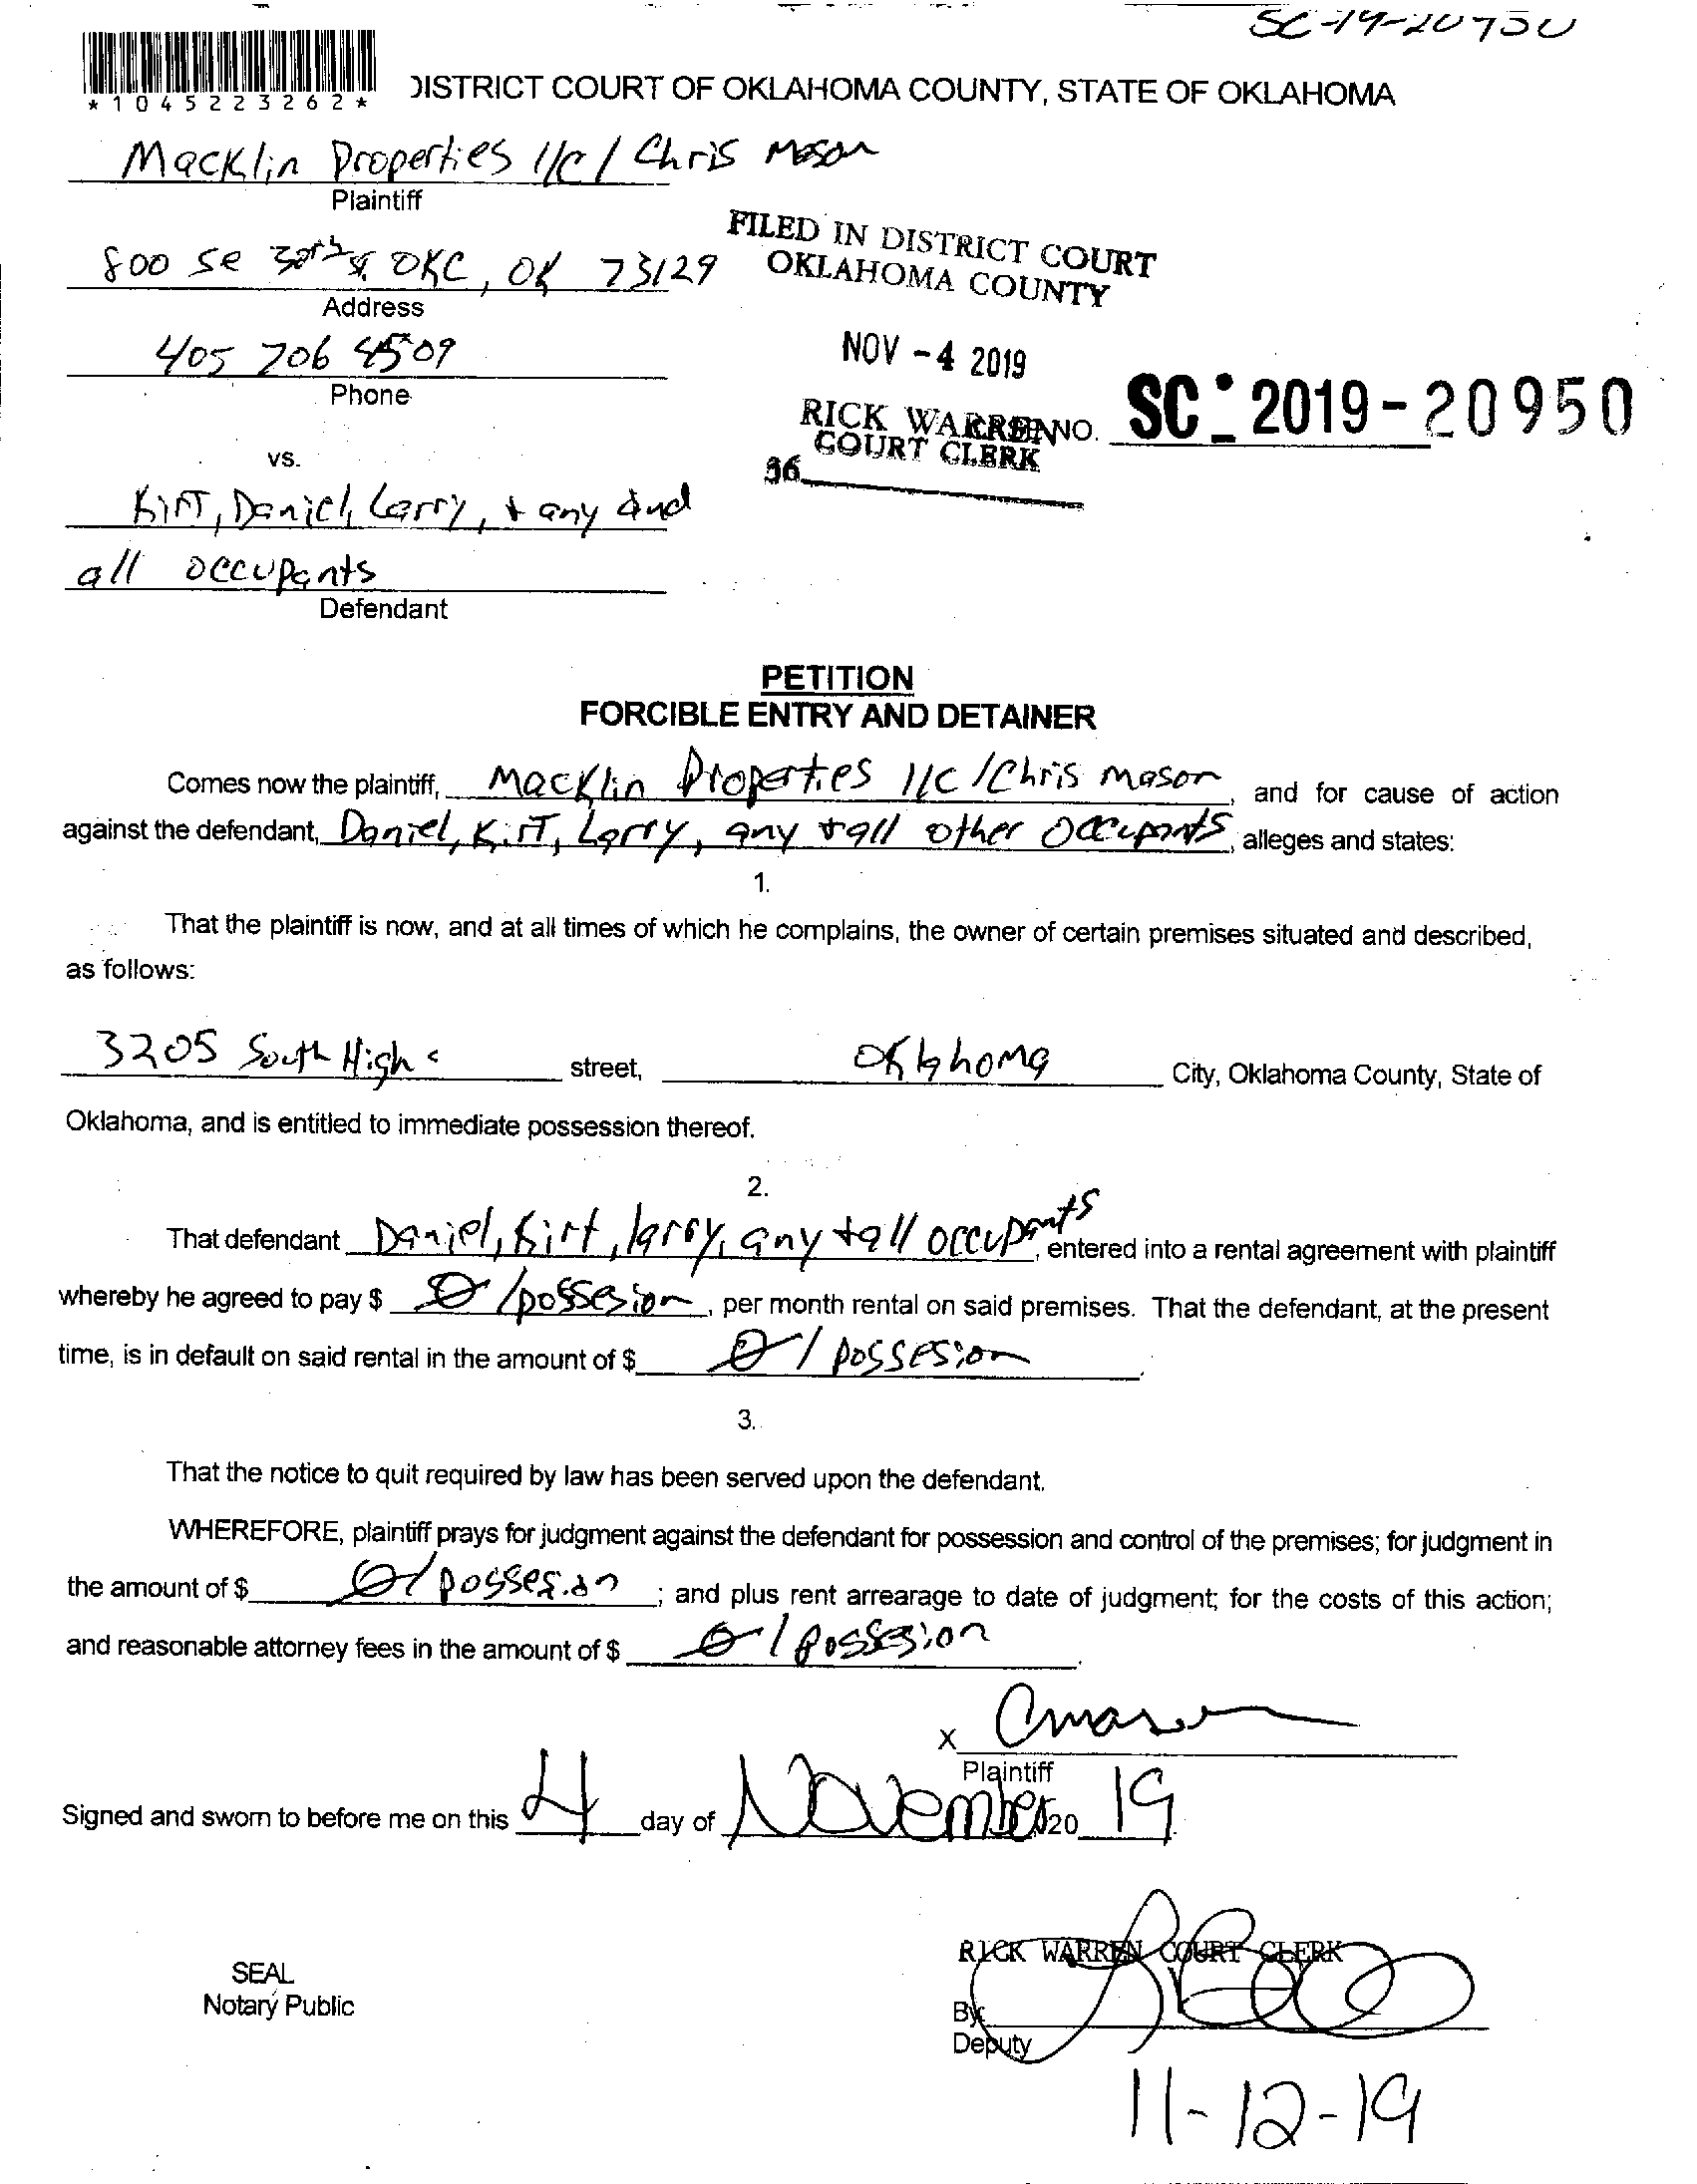 SC-19-20950
*1045223262*
DISTRICT COURT OF OKLAHOMA COUNTY, STATE OF OKLAHOMA
Macklin Properties llc / Chris Mason
Plaintiff
800 SE 30th St. OKC, OK 73129
Address
405 706 4509
Phone
FILED IN DISTRICT COURT
OKLAHOMA COUNTY
NOV -4 2019
RICK WARREN
COURT CLERK
36
NO. SC-2019-20950
vs.
Kirt, Daniel, Larry, + any and
all occupants
Defendant
PETITION
FORCIBLE ENTRY AND DETAINER
Comes now the plaintiff, Macklin Properties llc / Chris Mason, and for cause of action
against the defendant, Daniel, Kirt, Larry, any + all other occupants, alleges and states:
1.
That the plaintiff is now, and at all times of which he complains, the owner of certain premises situated and described,
as follows:
3205 South High street, Oklahoma City, Oklahoma County, State of
Oklahoma, and is entitled to immediate possession thereof.
2.
That defendant Daniel, Kirt, larry, any + all occupants, entered into a rental agreement with plaintiff
whereby he agreed to pay $ 0 /possesion, per month rental on said premises. That the defendant, at the present
time, is in default on said rental in the amount of $ 0 / possesion.
3.
That the notice to quit required by law has been served upon the defendant.
WHEREFORE, plaintiff prays for judgment against the defendant for possession and control of the premises; for judgment in
the amount of $ 0 / possesion; and plus rent arrearage to date of judgment; for the costs of this action;
and reasonable attorney fees in the amount of $ 0 / possesion.
x Cmason
Plaintiff
Signed and sworn to before me on this 4 day of November, 20 19.
SEAL
Notary Public
RICK WARREN COURT CLERK
By:
Deputy
11-12-19